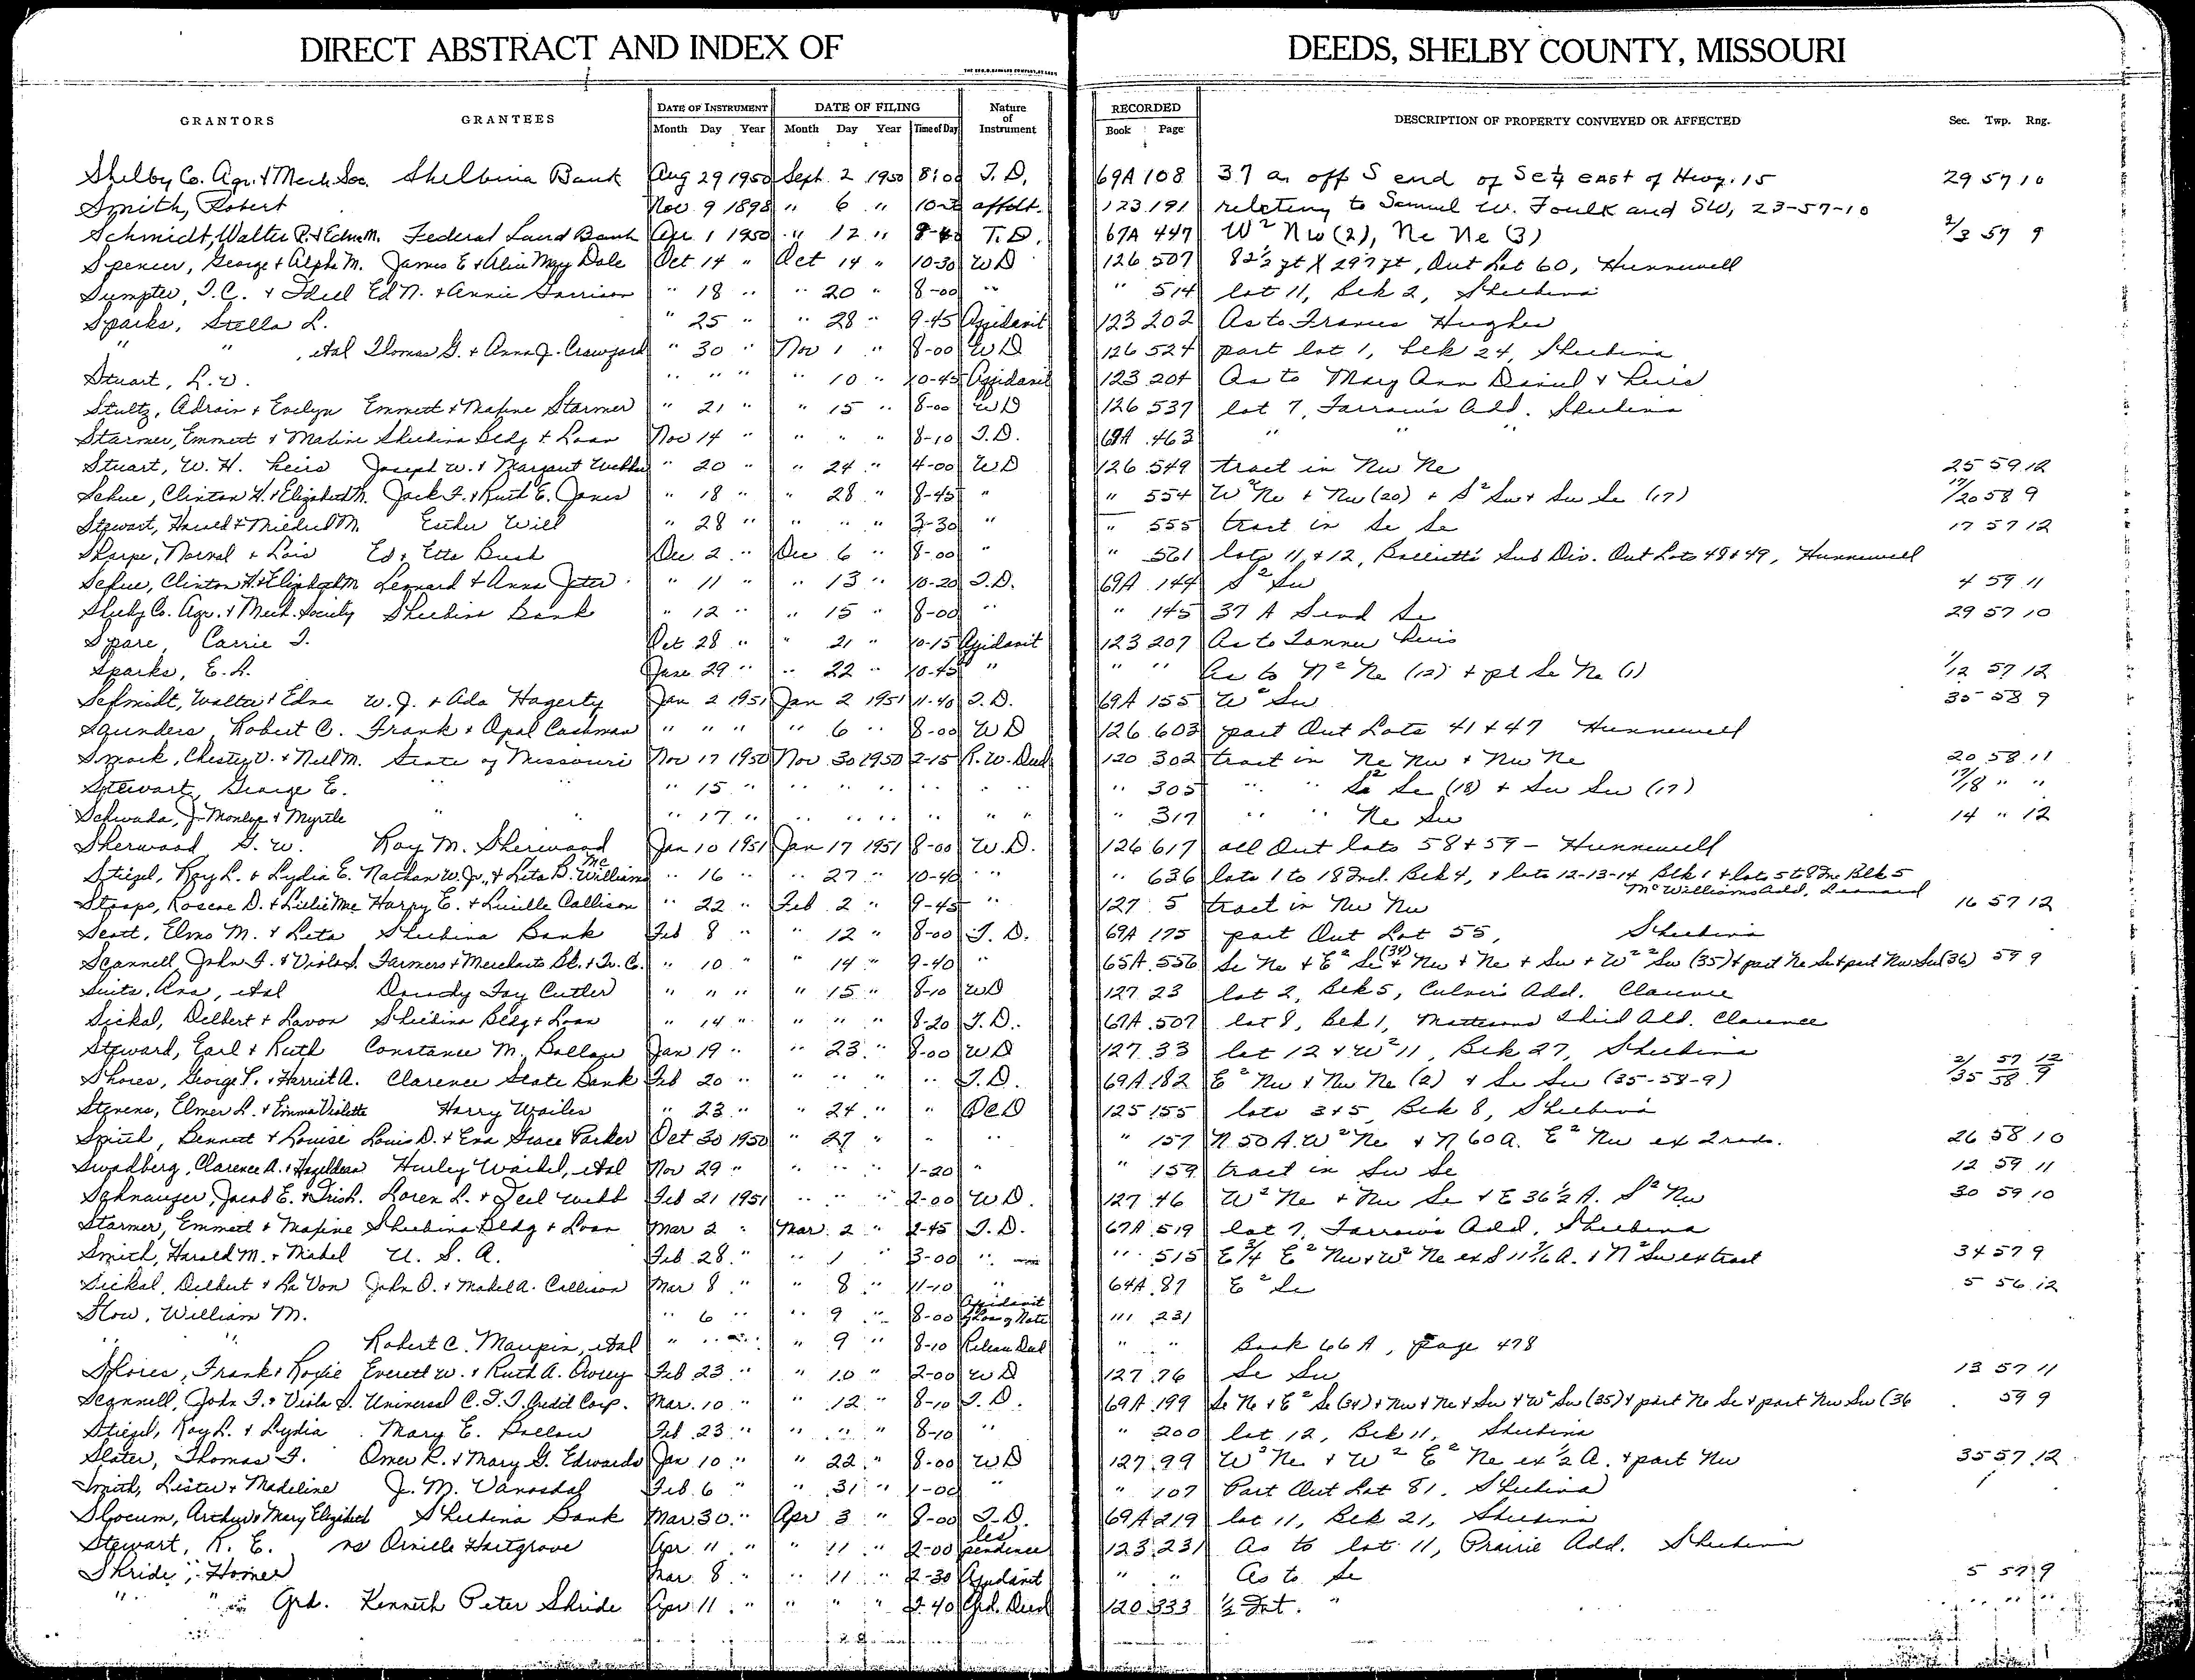 DIRECT ABSTRACT AND INDEX OF DEEDS, SHELBY COUNTY, MISSOURI
GRANTORS GRANTEES DATE OF INSTRUMENT DATE OF FILING Nature of Instrument RECORDED DESCRIPTION OF PROPERTY CONVEYED OR AFFECTED Sec. Twp. Rng.
Month Day Year Month Day Year Time of Day Book Page
Shelby Co. Agr. & Mech. Soc. Shelbina Bank Aug 29 1950 Sept. 2 1950 8:00 T.D. 69A 108 37 a. off S end of Se¼ east of Hwy. 15 29 57 10
Smith, Robert Nov 9 1898 " 6 " affdt. 123 191 relating to Samuel W. Foulk and SW, 23-57-10
Schmidt, Walter P. & Edna M. Federal Land Bank Apr 1 1950 " 12 " T.D. 67A 447 W² NW (2), Ne Ne (3) 2/3 57 9
Spencer, George & Alpha M. James E & Alice Mary Dale Oct 14 " Oct 14 " 10-30 WD 126 507 82½ ft X 297 ft, Out Lot 60, Hunnewell
Sumpter, I.C. & Idell Ed N. & Annie Garrison " 18 " " 20 " 8-00 " " 514 lot 11, Blk 2, Shelbina
Sparks, Stella L. " 25 " " 28 " 9-45 Affidavit 123 202 As to Frances Hughes
" " , etal Thomas G. & Anna J. Crawford " 30 " Nov 1 " 8-00 WD 126 524 part lot 1, blk 24, Shelbina
Stuart, L.V. " " " " 10 " 10-45 Affidavit 123 204 As to Mary Ann Daniel & heirs
Stultz, Adrain & Evelyn Emmett & Maxine Starmer " 21 " " 15 " 8-00 WD 126 537 lot 7, Farrow's Add. Shelbina
Starmer, Emmett & Maxine Shelbina Bldg & Loan Nov 14 " " " " 8-10 T.D. 67A 463 " " "
Stuart, W.H. heirs Joseph W. & Margaret Webber " 20 " " 24 " 4-00 WD 126 549 tract in Nw Ne 25 59 12
Schue, Clinton H. & Elizabeth M. Jack F. & Ruth E. Jones " 18 " " 28 " 8-45 " " 554 W² Ne & Nw (20) & S² Sw & Sw Se (17) 17/20 58 9
Stewart, Harold & Mildred M. Esther Will " 28 " " " " 3-30 " " 555 tract in Se Se 17 57 12
Sharpe, Norval & Lois Ed & Etta Bush Dec 2 " Dec 6 " 8-00 " " 561 lots 11 & 12, Sub Div. Out Lots 48 & 49, Hunnewell
Schue, Clinton H. & Elizabeth M Leonard & Anna Jeter " 11 " " 13 " 10-20 T.D. 69A 144 S² Sw 4 59 11
Shelby Co. Agr. & Mech. Society Shelbina Bank " 12 " " 15 " 8-00 " " 145 37 A S end Se 29 57 10
Spare, Carrie T. Oct 28 " " 21 " 10-15 Affidavit 123 207 As to Tanner heirs
Sparks, E.L. June 29 " " 22 " 10-45 " " " As to N² Ne (12) & pt Se Ne (1) 1/12 57 12
Schmidt, Walter & Edna W.J. & Ada Hagerty Jan 2 1951 Jan 2 1951 11-40 T.D. 69A 155 W² Sw 35 58 9
Saunders, Robert C. Frank & Opal Cashman " " " " 6 " 8-00 WD 126 603 part Out Lots 41 & 47 Hunnewell
Smock, Chester V. & Nell M. State of Missouri Nov 17 1950 Nov 30 1950 2-15 R.W. Deed 120 302 tract in Ne Nw & Nw Ne 20 58 11
Stewart, George E. " " " 15 " " " " " " " " 305 " " Se Se (18) & Sw Sw (17) 17/18 " "
Schwada, J. Monlye & Myrtle " " " 17 " " " " " " " " 317 " " Ne Sw 14 " 12
Sherwood, G.W. Roy M. Sherwood Jan 10 1951 Jan 17 1951 8-00 W.D. 126 617 all Out lots 58 & 59 - Hunnewell
Stiegel, Roy L. & Lydia E. Nathan W. Jr., & Leta B. McWilliams " 16 " " 27 " 10-40 " " " 636 lots 1 to 18 Incl. Blk 4, & lots 12-13-14 Blk 1 & lots 5 to 8 Inc Blk 5
McWilliams Add, Leonard
Stoops, Roscoe D. & Lillie Mae Harry E. & Lucille Callison " 22 " Feb 2 " 9-45 " 127 5 tract in Nw Nw 16 57 12
Scott, Elmo M. & Leta Shelbina Bank Feb 8 " " 12 " 8-00 T.D. 69A 175 part Out Lot 55, Shelbina
Scannell, John F. & Viola S. Farmers & Merchants Bk. & Tr. C. " 10 " " 14 " 9-40 " 65A 556 Se Ne & E² Se (34) & Nw & Ne & Sw & W² Sw (35) & part Ne Se & part Nw Sw (36) 59 9
Suits, Ana, etal Dorothy Fay Cutler " " " " 15 " 8-10 WD 127 23 lot 2, Blk 5, Culver's Add. Clarence
Sickal, Delbert & Lavon Shelbina Bldg & Loan " 14 " " " " 8-20 T.D. 67A 507 lot 8, Blk 1, Mattesons Third Add. Clarence
Steward, Earl & Ruth Constance M. Ballow Jan 19 " " 23 " 8-00 WD 127 33 lot 12 & W² 11, Blk 27, Shelbina
Shores, George T. & Harriet A. Clarence State Bank Feb 20 " " " " " T.D. 69A 182 E² Nw & Nw Ne (2) & Se Sw (35-58-9) 2/35 57/58 12/9
Stevens, Elmer L. & Emma Violette Harry Wailes " 23 " " 24 " " QCD 125 155 lots 3 & 5, Blk 8, Shelbina
Smith, Bennett & Louise Louis D. & Eva Grace Parker Oct 30 1950 " 27 " " " " 157 N. 50 A. W² Ne & N 60 A. E² Nw ex 2 rods. 26 58 10
Swadberg, Clarence A. & Hazeldean Hurley Waibel, etal Nov 29 " " " " 1-20 " " 159 tract in Sw Se 12 59 11
Schnauzer, Jacob E. & Iris L. Loren L. & Webb Feb 21 1951 " " " 2-00 W.D. 127 46 W² Ne & Nw Se & E 36½ A. S² Nw 30 59 10
Starmer, Emmett & Maxine Shelbina Bldg & Loan Mar 2 " Mar. 2 " 2-45 T.D. 67A 519 lot 7, Farrow's Add, Shelbina
Smith, Harold M. & Mabel U.S.A. Feb 28 " " 1 " 3-00 " " 515 E¾ E² Nw & W² Ne ex S A. & N² Sw ex tract 34 57 9
Sickal, Delbert & La Von John O. & Mabel A. Callison Mar 8 " " 8 " 11-10 " 64A 87 E² Se 5 56 12
Slow, William M. " 6 " " 9 " 8-00 Affidavit of Loss of Note " 231
" " Robert C. Maupin, etal " " " " 9 " 8-10 Release Deed " " Book 66A, page 478
Shores, Frank & Roxie Everett W. & Ruth A. Feb 23 " " 10 " 2-00 WD 127 76 Se Sw 13 57 11
Scannell, John F. & Viola S. Universal C.I.T. Credit Corp. Mar. 10 " " 12 " 8-10 T.D. 69A 199 Se Ne & E² Se (34) & Nw & Ne & Sw & W² Sw (35) & part Ne Se & part Nw Sw (36 59 9
Stiegel, Roy L. & Lydia Mary E. Ballow Feb. 23 " " " " 8-10 " " 200 lot 12, Blk 11, Shelbina
Slater, Thomas F. Omer R. & Mary G. Edwards Jan 10 " " 22 " 8-00 WD 127 99 W² Ne & W² E² Ne ex ½ A. & part Nw 35 57 12
Smith, Lister & Madeline J.M. Vanosdol Feb. 6 " " 31 " 1-00 " " 107 Part Out Lot 81. Shelbina
Slocum, Arthur & Mary Elizabeth Shelbina Bank Mar 30 " Apr 3 " 8-00 T.D. 69A 219 lot 11, Blk 21, Shelbina
Stewart, R.E. vs Hartgrove Apr 11 " " 11 " 2-00 les pendence 123 231 As to lot 11, Prairie Add. Shelbina
Skride, Homer Mar. 8 " " 11 " 2-30 Affidavit " " As to Se 5 57 9
" " Grd. Kenneth Peter Skride Apr 11 " " " " 2-40 Grd. Deed 120 333 ½ Int. " " " "